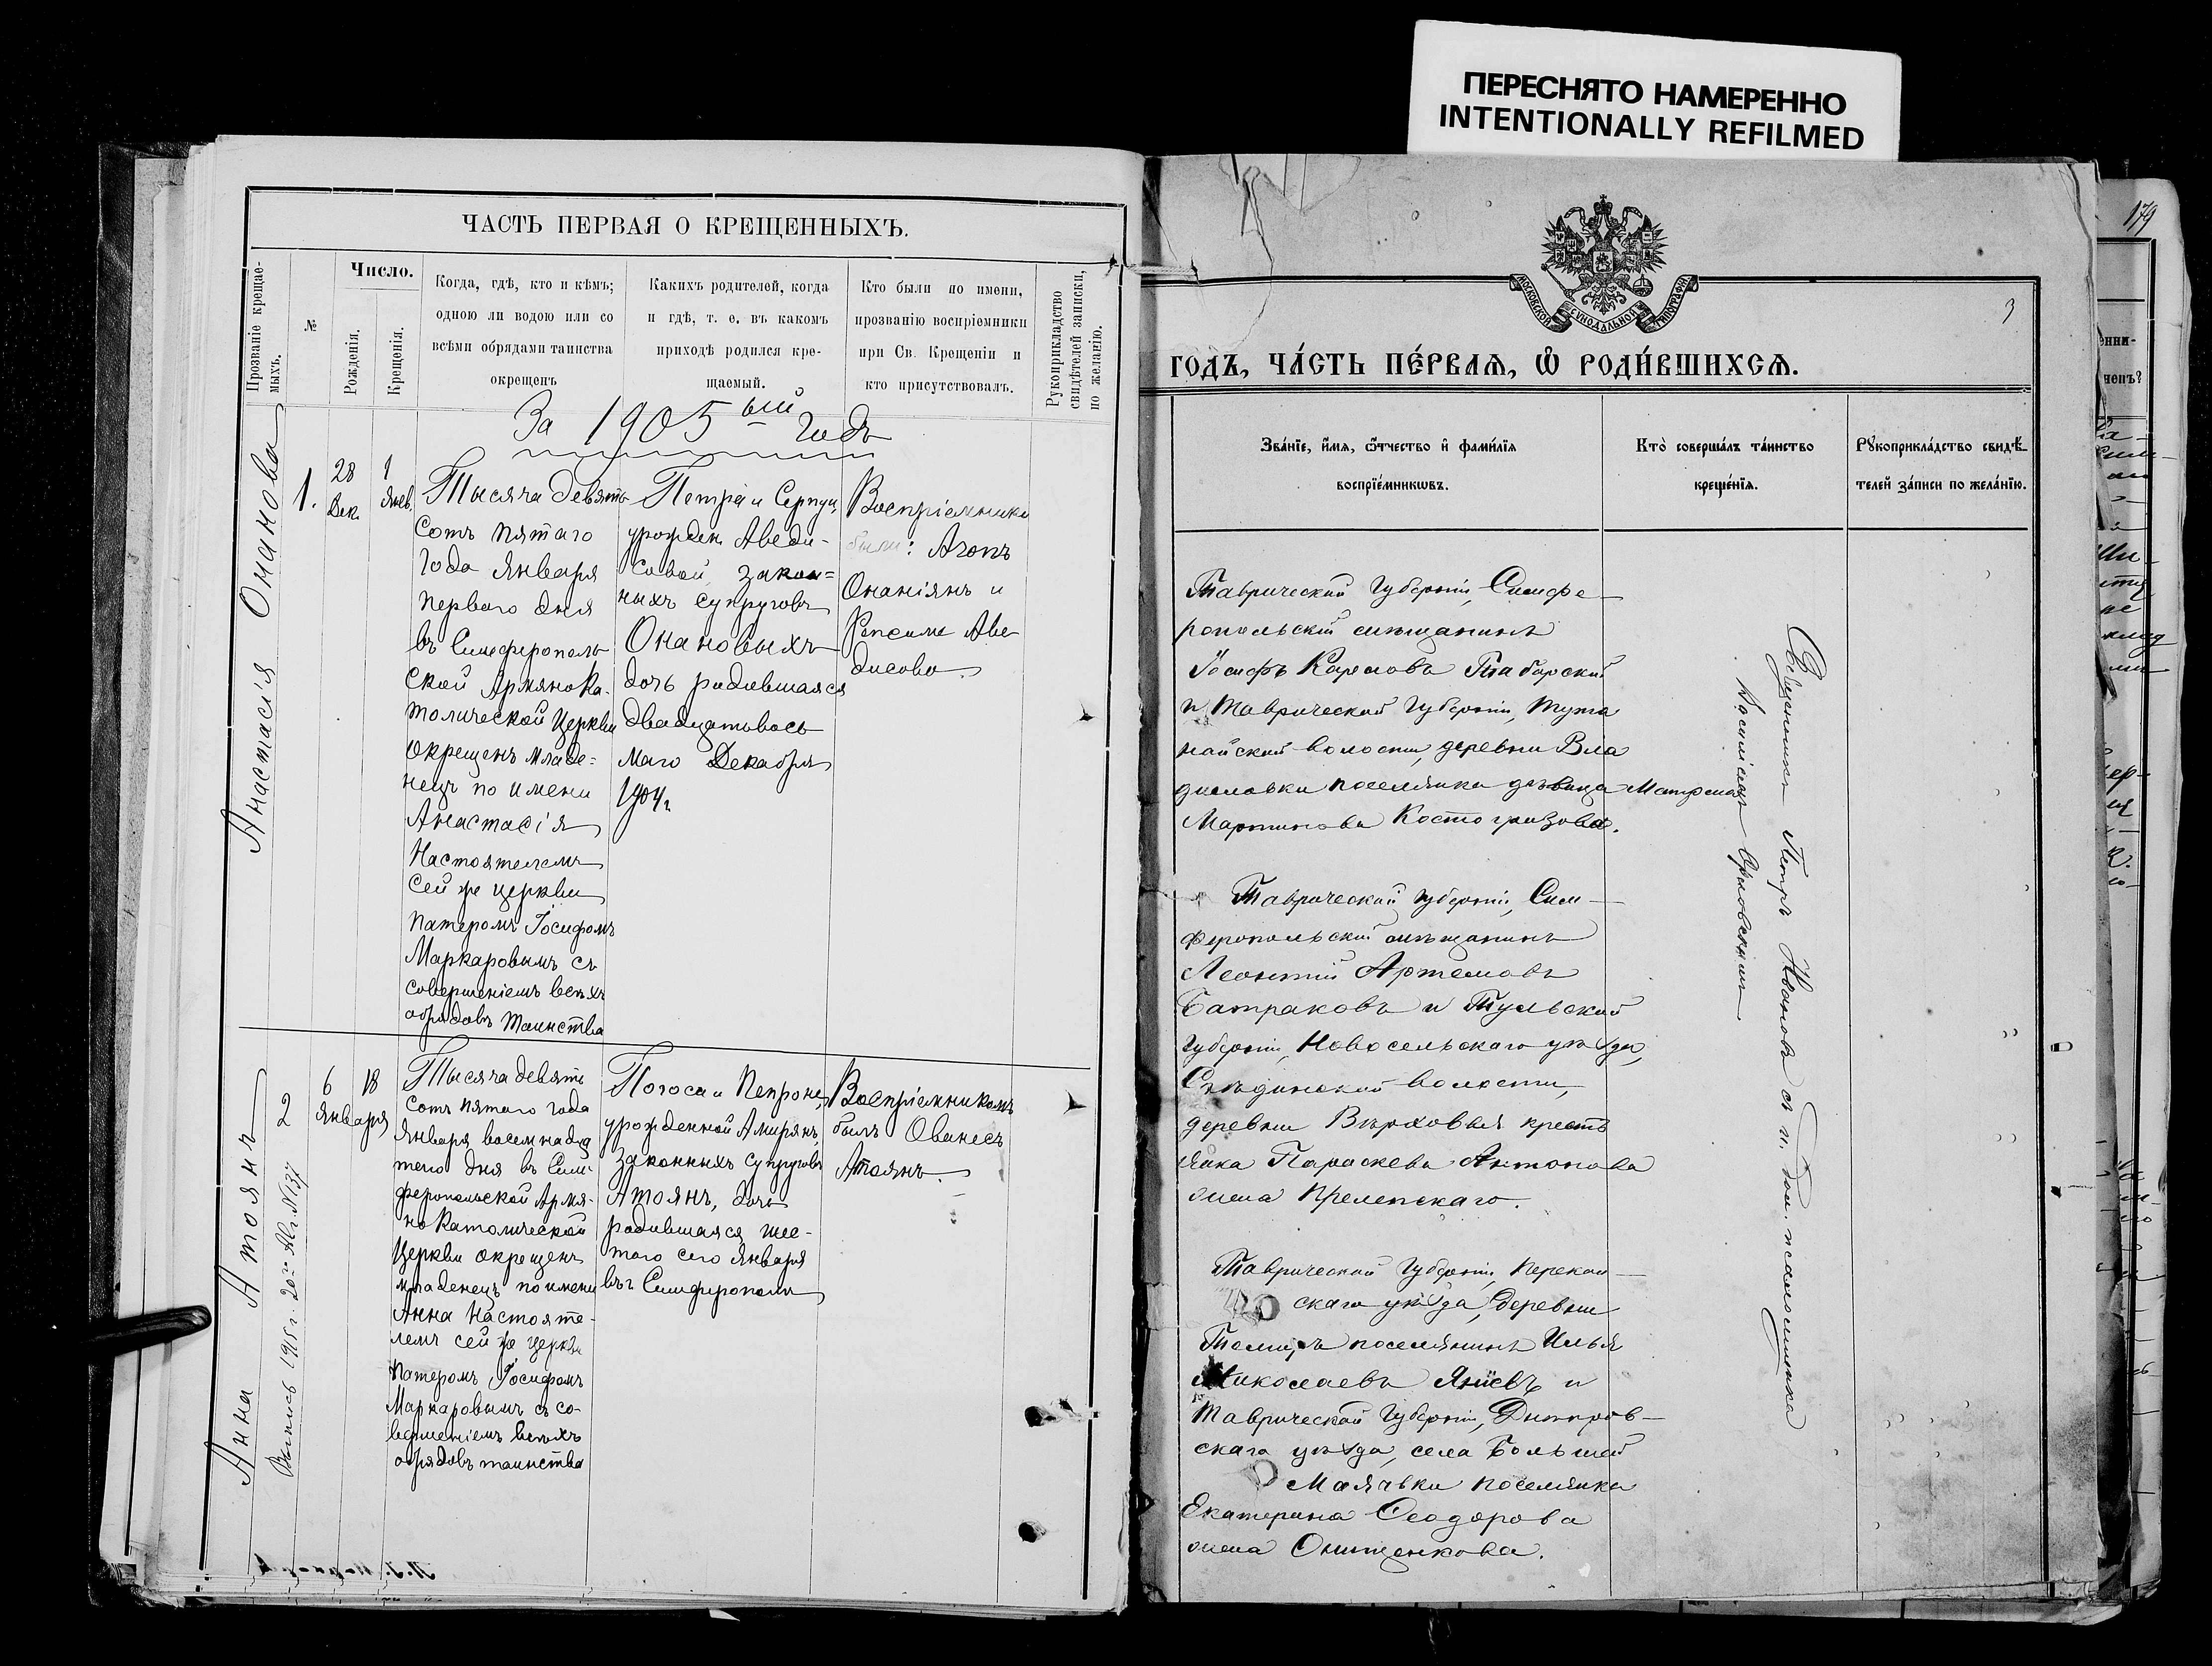 ПЕРЕСНЯТО НАМЕРЕННО
INTENTIONALLY REFILMED
179
ЧАСТЬ ПЕРВАЯ О КРЕЩЕННЫХЪ.
Прозваніе крещае-
мыхъ.
№
Число.
Рожденія.
Крещенія.
Когда, гдѣ, кто и кѣмъ;
одною ли водою или со
всѣми обрядами таинства
окрещенъ
Какихъ родителей, когда
и гдѣ, т. е. въ какомъ
приходѣ родился кре-
щаемый.
Кто были по имени,
прозванію воспріемники
при Св. Крещеніи и
кто присутствовалъ.
Рукоприкладство
свидѣтелей записки,
по желанію.
За 1905 ый годъ
Анастасія Онанова
1.
28
Дек.
1
Янв.
Тысяча девять
сотъ пятаго
года Января
перваго дня
въ Симферополь
ской Армянока-
толической Церкви
окрещенъ младе=
нецъ по имени
Анастасія
Настоятелемъ
сей же церкви
патеромъ Іосифомъ
Маркаровымъ съ
совершеніемъ всѣхъ
обрядовъ таинства
Петра и
урожден. Аведи-
совой, закон=
ныхъ супруговъ
Онановыхъ
дочь родившаяся
двадцатьвось
маго Декабря
1904 г.
Воспріемники
были: Агопъ
Онаніянъ и
Репсиме Аве
дисова
Анна Атоянъ
2
Выпись 1915 г. 20го Авг. №137
6 18
Января
Тысяча девять
сотъ пятаго года
Января восемнадца
таго дня въ Сим
феропольской Армя-
но Католической
Церкви окрещенъ
младенецъ по имени
Анна Настояте-
лемъ сей же церкви
патеромъ Іосифомъ
Маркаровымъ съ со-
вершеніемъ всѣхъ
обрядовъ таинства
Погоса и Пепроне,
урожденной Амирянъ,
законныхъ супруговъ
Атоянъ, дочь
родившаяся шес-
таго сего Января
въ г. Симферополи
Воспріемникомъ
былъ Ованесъ
Атоянъ.
МОСКОВСКОЙ СѴНОДАЛЬНОЙ ТИПОГРАФІИ
3
ГОДЪ, ЧА́СТЬ ПЕ́РВАЯ, Ѡ҆ РОДИ́ВШИХСЯ.
Зва́нїе, и҆́мя, ѻ҆́тчество и҆ фами́лїя
воспрїе́мникѡвъ.
Кто̀ соверша́лъ та́инство
креще́нїя.
Рꙋкоприкла́дство свидѣ́-
телей за́писи по жела́нїю.
Таврической Губерніи, Симфе-
ропольскій мѣщанинъ
Іосифъ Карповъ Табарскій
и Таврической Губерніи,
волости, деревни Вла
диславки поселянка дѣвица Матрона
Мартинова Костогризова.
Таврической Губерніи, Сим-
феропольскій мѣщанинъ
Леонтій Артемовъ
Батраковъ и Тульской
Губерніи, Новосельскаго уѣзда,
волости,
деревни Верховья кресть
янка Параскева Антонова
жена
Таврической Губерніи, Перекоп-
скаго уѣзда, деревни
поселянинъ Илья
Николаевъ Яніевъ и
Таврической Губерніи, Днѣпров-
скаго уѣзда, села Большой
Маячки поселянка
Екатерина Ѳеодорова
жена Онищенкова.
Священникъ Петръ Ивановъ съ и. дол. псаломщика